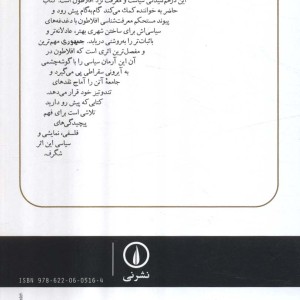 حاضر به خواننده کمک می‌کند گام‌به‌گام پیش رود و
پیوند مستحکم معرفت‌شناسی افلاطون با دغدغه‌های
سیاسی‌اش برای ساختن شهری بهتر، عادلانه‌تر و
باثبات‌تر را به‌روشنی دریابد. جمهوری مهم‌ترین
و مفصل‌ترین اثری است که افلاطون در
آن این آرمان سیاسی را با گوشه‌چشمی
به آیرونی سقراطی پی می‌گیرد و
جامعهٔ آتن را آماج نقدهای
تندوتیز خود قرار می‌دهد.
کتابی که پیش رو دارید
تلاشی است برای فهم
پیچیدگی‌های
فلسفی، نمایشی و
سیاسی این اثر
شگرف.
نشر نی
ISBN 978-622-06-0516-4